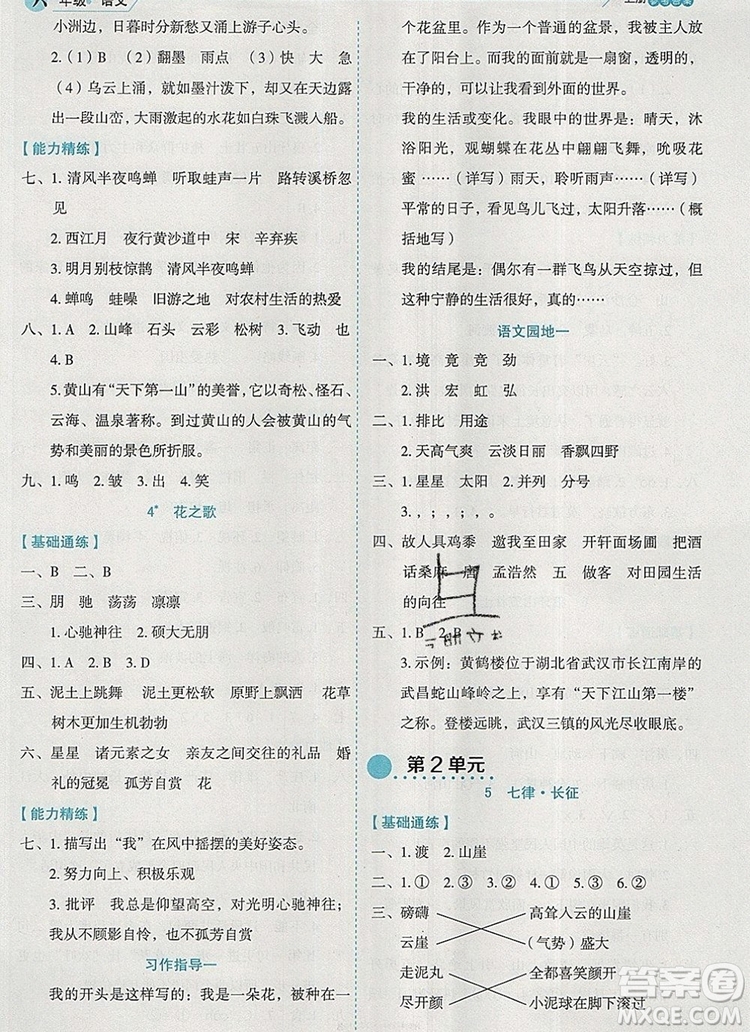 六年级·语文
上册 参考答案
小洲边，日暮时分想起又涌上游子心头。
2.（1）B （2）翻墨 雨点 （3）快 大 急
（4）乌云上涌，就如墨汁泼下，却又在天边露
出一段山峦，大雨激起的水花如白珠飞溅入船。
【能力精练】
七、1. 清风半夜鸣蝉 听取蛙声一片 路转溪桥忽
见
2. 西江月 夜行黄沙道中 宋 辛弃疾
3. 明月别枝惊鹊 清风半夜鸣蝉
4. 蝉鸣 蛙噪 旧游之地 对农村生活的热爱
八、1. A 2. 山峰 石头 云彩 松树 3. 飞动 也
4. B
5. 黄山有“天下第一山”的美誉，它以奇松、怪石、
云海、温泉著称。到过黄山的人会被黄山的气
势和美丽的景色所折服。
九、1. 鸣 2. 皱 3. 出 4. 笑
4* 花之歌
【基础通练】
一、B 二、B
三、朋 驰 荡荡 凛凛
1. 心驰神往 2. 硕大无朋
四、1. A 2. B 3. D
五、泥土上跳舞 泥土更松软 原野上飘洒 花草
树木更加生机勃勃
六、星星 诸元素之女 亲友之间交往的礼品 婚
礼的冠冕 孤芳自赏 花
【能力精练】
七、1. 描写出“我”在风中摇摆的美好姿态。
2. 努力向上、积极乐观
3. 批评 我总是仰望高空，对光明心驰神往。
我从不顾影自怜，也不孤芳自赏
习作指导一
我的开头是这样写的：我是一朵花，被人们
种在
个花盆里，成为一个普通的盆景，我被主人放
在了阳台上。我的面前就是一扇窗，透明的，
干净的，可以让我看到外面的世界。
我的生活或变化。我眼中的世界是：晴天，沐
浴阳光，观蝴蝶在花丛中翩翩飞舞，吮吸花蜜
……（详写）雨天，听雨声……（详写）
平常的日子，看鸟儿飞过，太阳升落……（概
括地写）
我的结尾是：偶尔有一群飞鸟从天空掠过，但
这种宁静的生活很舒适，真的……
语文园地一
一、1. 境 竟 竞 劲
2. 洪 宏 虹 弘
二、1. 排比 用途
2. 天高气爽 云淡日丽 香飘四野
三、1. 星星 太阳 2. 并列 分号
3. ，；，；，；。
四、故人具鸡黍 邀我至田家 开轩面场圃 把酒
话桑麻 唐 孟浩然 五 做客 对田园生活
的向往
五、1. B 2. B
3. 示例：黄鹤楼位于湖北省武汉市长江南岸的
武昌蛇山峰岭之上，享有“天下江山第一楼”
之称。登楼远眺，武汉三镇的风光尽收眼底。
第2单元
5 七律·长征
【基础通练】
一、1. 渡 2. 山崖
二、1. ① 2. ② 3. ② 4. ① 5. ③ 6. ②
三、磅礴 高耸入云的山崖
云崖 （气势）盛大
走泥丸 全都喜笑颜开
尽开颜 小泥球在脚下滚过
答案圈
MXQE.COM